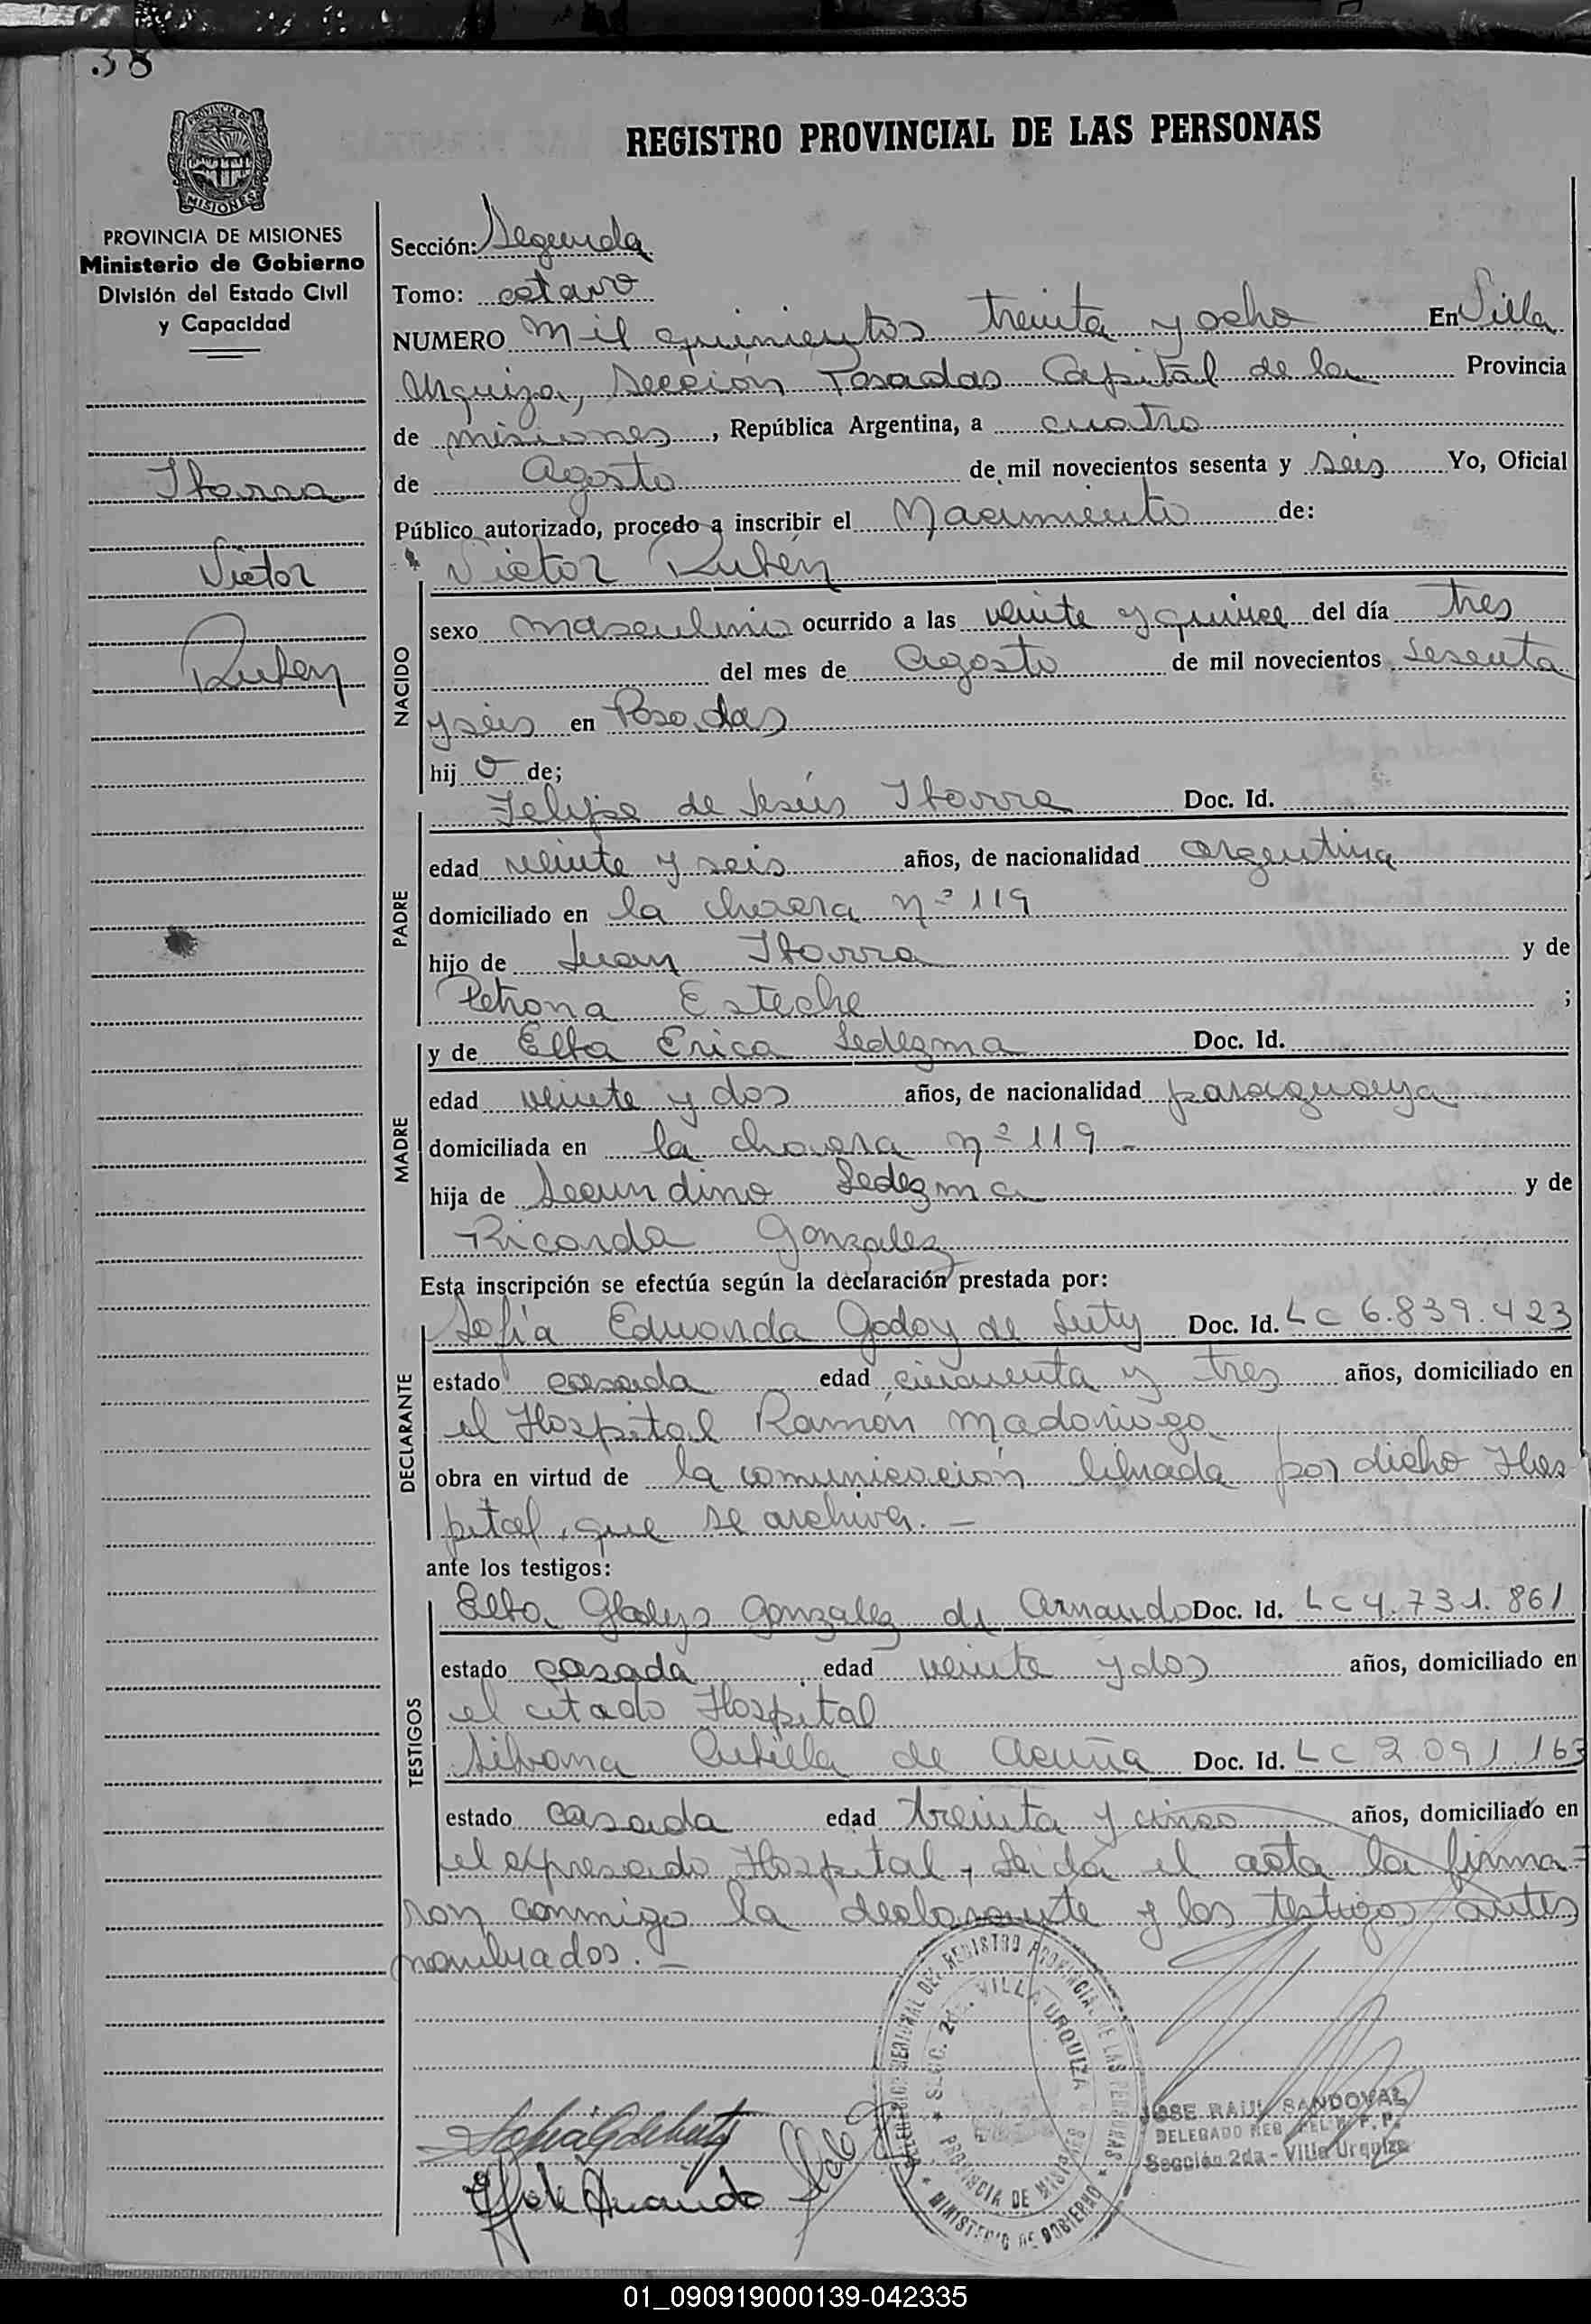 38
REGISTRO PROVINCIAL DE LAS PERSONAS
PROVINCIA DE MISIONES
MISIONES
PROVINCIA DE MISIONES
Ministerio de Gobierno
División del Estado Civil
y Capacidad
Ibarra
Victor
Ruben
Sección: Segunda
Tomo: octavo
NUMERO mil quinientos treinta y ocho En Villa
Urquiza, Sección Posadas Capital de la Provincia
de misiones, República Argentina, a cuatro
de Agosto de mil novecientos sesenta y seis Yo, Oficial
Público autorizado, procedo a inscribir el Nacimiento de:
Victor Rubén
NACIDO
sexo masculino ocurrido a las veinte y quince del día tres
del mes de agosto de mil novecientos sesenta
y seis en Posadas
hij o de;
PADRE
Felipe de Jesús Ibarra Doc. Id.
edad veinte y seis años, de nacionalidad argentina
domiciliado en la chacra nº 119
hijo de Juan Ibarra y de
Petrona Esteche ;
MADRE
y de Elba Erica Ledezma Doc. Id.
edad veinte y dos años, de nacionalidad paraguaya
domiciliada en la chacra nº 119 -
hija de Secundino Ledezma y de
Ricarda Gonzalez
Esta inscripción se efectúa según la declaración prestada por:
DECLARANTE
Sofía Eduarda Godoy de Doc. Id. LC 6.839.423
estado casada edad cincuenta y tres años, domiciliado en
el Hospital Ramón Madariaga
obra en virtud de la comunicación librada por dicho Hos
pital, que se archiva. -
ante los testigos:
TESTIGOS
Elba Gladys Gonzalez de Arnaudo Doc. Id. LC 4.731.861
estado casada edad veinte y dos años, domiciliado en
el citado Hospital
Silvana de Acuña Doc. Id. LC 2.091.163
estado casada edad treinta y cinco años, domiciliado en
el expresado Hospital, Leida el acta la firma=
ron conmigo la declarante y los testigos antes
nombrados. -
DEL REGISTRO PROVINCIAL DE LAS PERSONAS
SECC. 2da. VILLA URQUIZA
PROVINCIA DE MISIONES
MINISTERIO DE GOBIERNO
JOSE RAUL SANDOVAL
DELEGADO REG. DEL R. P. P.
Sección 2da - Villa Urquiza
01_090919000139-042335